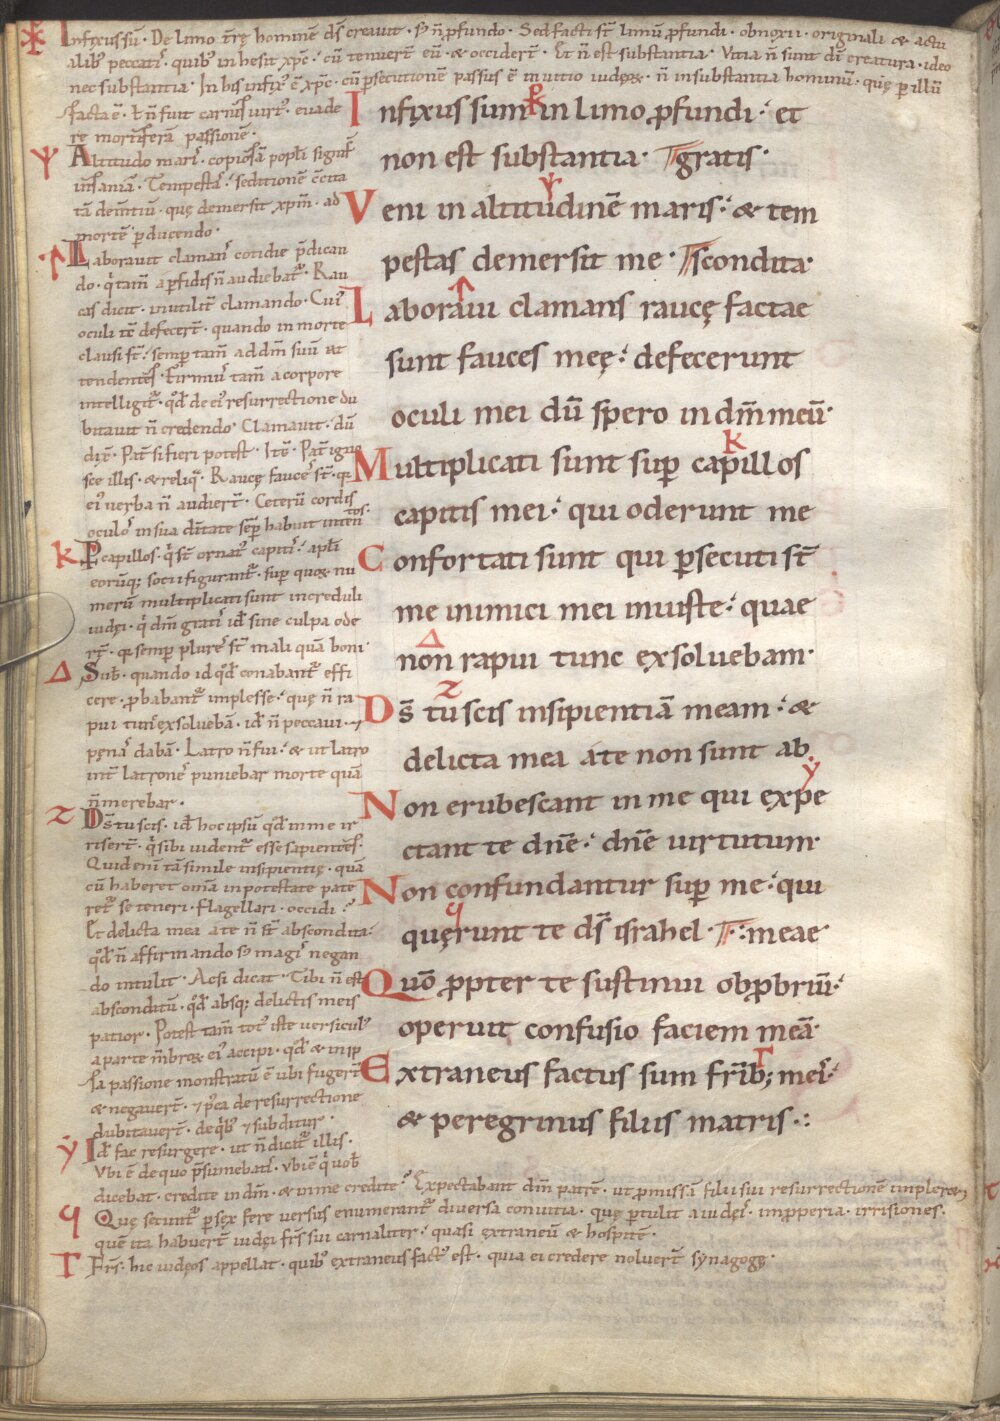 Infixus sū. De limo tr̄ę hominē ds̄ creauit. s; n̄ ꝓfundo. Sed facti st̄ limū ꝓfundi. obnoxii. originali & actu
alib; peccatis. quib; inhesit xp̄c. cū tenuert̄ eū. & occidert̄. Et n̄ est substantia. Vitia n̄ sunt dī creatura. ideo
nec substantia. In his infixus ē xp̄c. cū ꝑsecutionē passus ē in uitio iudęoꝝ. n̄ in substantia hominū. quę ꝑ illū
facta ē. ł n̄ fuit carnis uirtus. euade
re mortiferā passionē.
Altitudo maris. copiosā popli signif̄
insaniā. Tempestas. seditionē c̄cita
tā dem̄tiū. quę demersit xp̄m. ad
mortē ꝑducendo.
Laborauit clamans cotidie p̄dican
do. q̇ tam̄ a ꝑfidis n̄ audiebat. Rau
cas dicit. inutilit̄ clamando. Cuius
oculi tē defecert̄. quando in morte
clausi st̄. semꝑ tam̄ ad dm̄ suū at
tendentes. Firmius tam̄ a corpore
intelligit. qđ de eius resurrectione du
bitauit n̄ credendo. Clamauit. dū
dic̄. Pat̄ si fieri potest. Itē. Pat̄ igno
sce illis. & reliq̄. Raucę fauces st̄. q
eius uerba n̄ audiert̄. Ceterū cordis
oculos in sua diuitate sēp habuit intentos.
P capillos. q̇ st̄ ornatus capitis. apl̄i
eorūq; socii figurant. suꝑ quos nu
merū multiplicati sunt increduli
iudęi. q̇ dm̄ gratis id sine culpa ode
rt̄. q semꝑ plures st̄ mali quā boni.
Sub. quando id qđ conabant effi
cere. ꝓbabant implesse. quę n̄ ra
pui tunc exsoluebā. id n̄ peccaui. ⁊
pęnas dabā. Latro n̄ fui. & ut latro
int̄ latrones puniebar morte quā
n̄ merebar.
Ds̄ tu scis. id hoc ipsū qđ in me ir
risert̄. q̇ sibi uident esse sapientes.
Quid enī tā simile insipientię. quā
cū haberet om̄a in potestate pate
ret se teneri. flagellari. occidi.
Et delicta mea a te n̄ st̄ abscondita.
qđ n̄ affirmando s; magis negan
do intulit. Acsi dicat. Tibi n̄ est
absconditū. qđ absq; delictis meis
patior. Potest tam̄ totus iste uersiculus
a parte m̄broꝝ eius accipi. qđ & in ip
sa passione monstratū ē ubi fugert̄
& negauert̄. ⁊ p̄ea de resurrectione
dubitauert̄. de q̇b; ⁊ subditur.
Id fac resurgere. ut n̄ dicat illis.
Vbi ē de quo p̄sumebatis. Vbi ē q̇ uob̄
dicebat. credite in dm̄. & in me credite. Expectabant dm̄ patrē. ut ꝓmissā filii sui resurrectionē impleret.
Quę secunt ꝑ sex fere uersus enumerant diuersa conuitia. quę ꝑtulit a iudęis. impꝓperia. irrisiones.
quē ita habuert̄ iudęi frs̄ sui carnaliter. quasi extraneū & hospitē.
Frs̄. hic iudęos appellat. quib; extraneus factus est. quia ei credere noluert̄ synagogę.
Infixus sum in limo ꝓfundi. et
non est substantia. gratis.
Veni in altitudinē maris. & tem
pestas demersit me. scondita.
Laboraui clamans raucę factae
sunt fauces meę. defecerunt
oculi mei dū spero in dm̄ meū.
Multiplicati sunt suꝑ capillos
capitis mei. qui oderunt me
Confortati sunt qui ꝑsecuti st̄
me inimici mei iniuste. quae
non rapui tunc exsoluebam.
Ds̄ tu scis insipientiā meam. &
delicta mea a te non sunt ab.
Non erubescant in me qui expe
ctant te dn̄e. dn̄e uirtutum.
Non confundantur suꝑ me. qui
quęrunt te ds̄ israhel. meae
Quō ꝓpter te sustinui obꝓbriū.
operuit confusio faciem meā.
Extraneus factus sum fr̄ib; meis.
& peregrinus filiis matris.